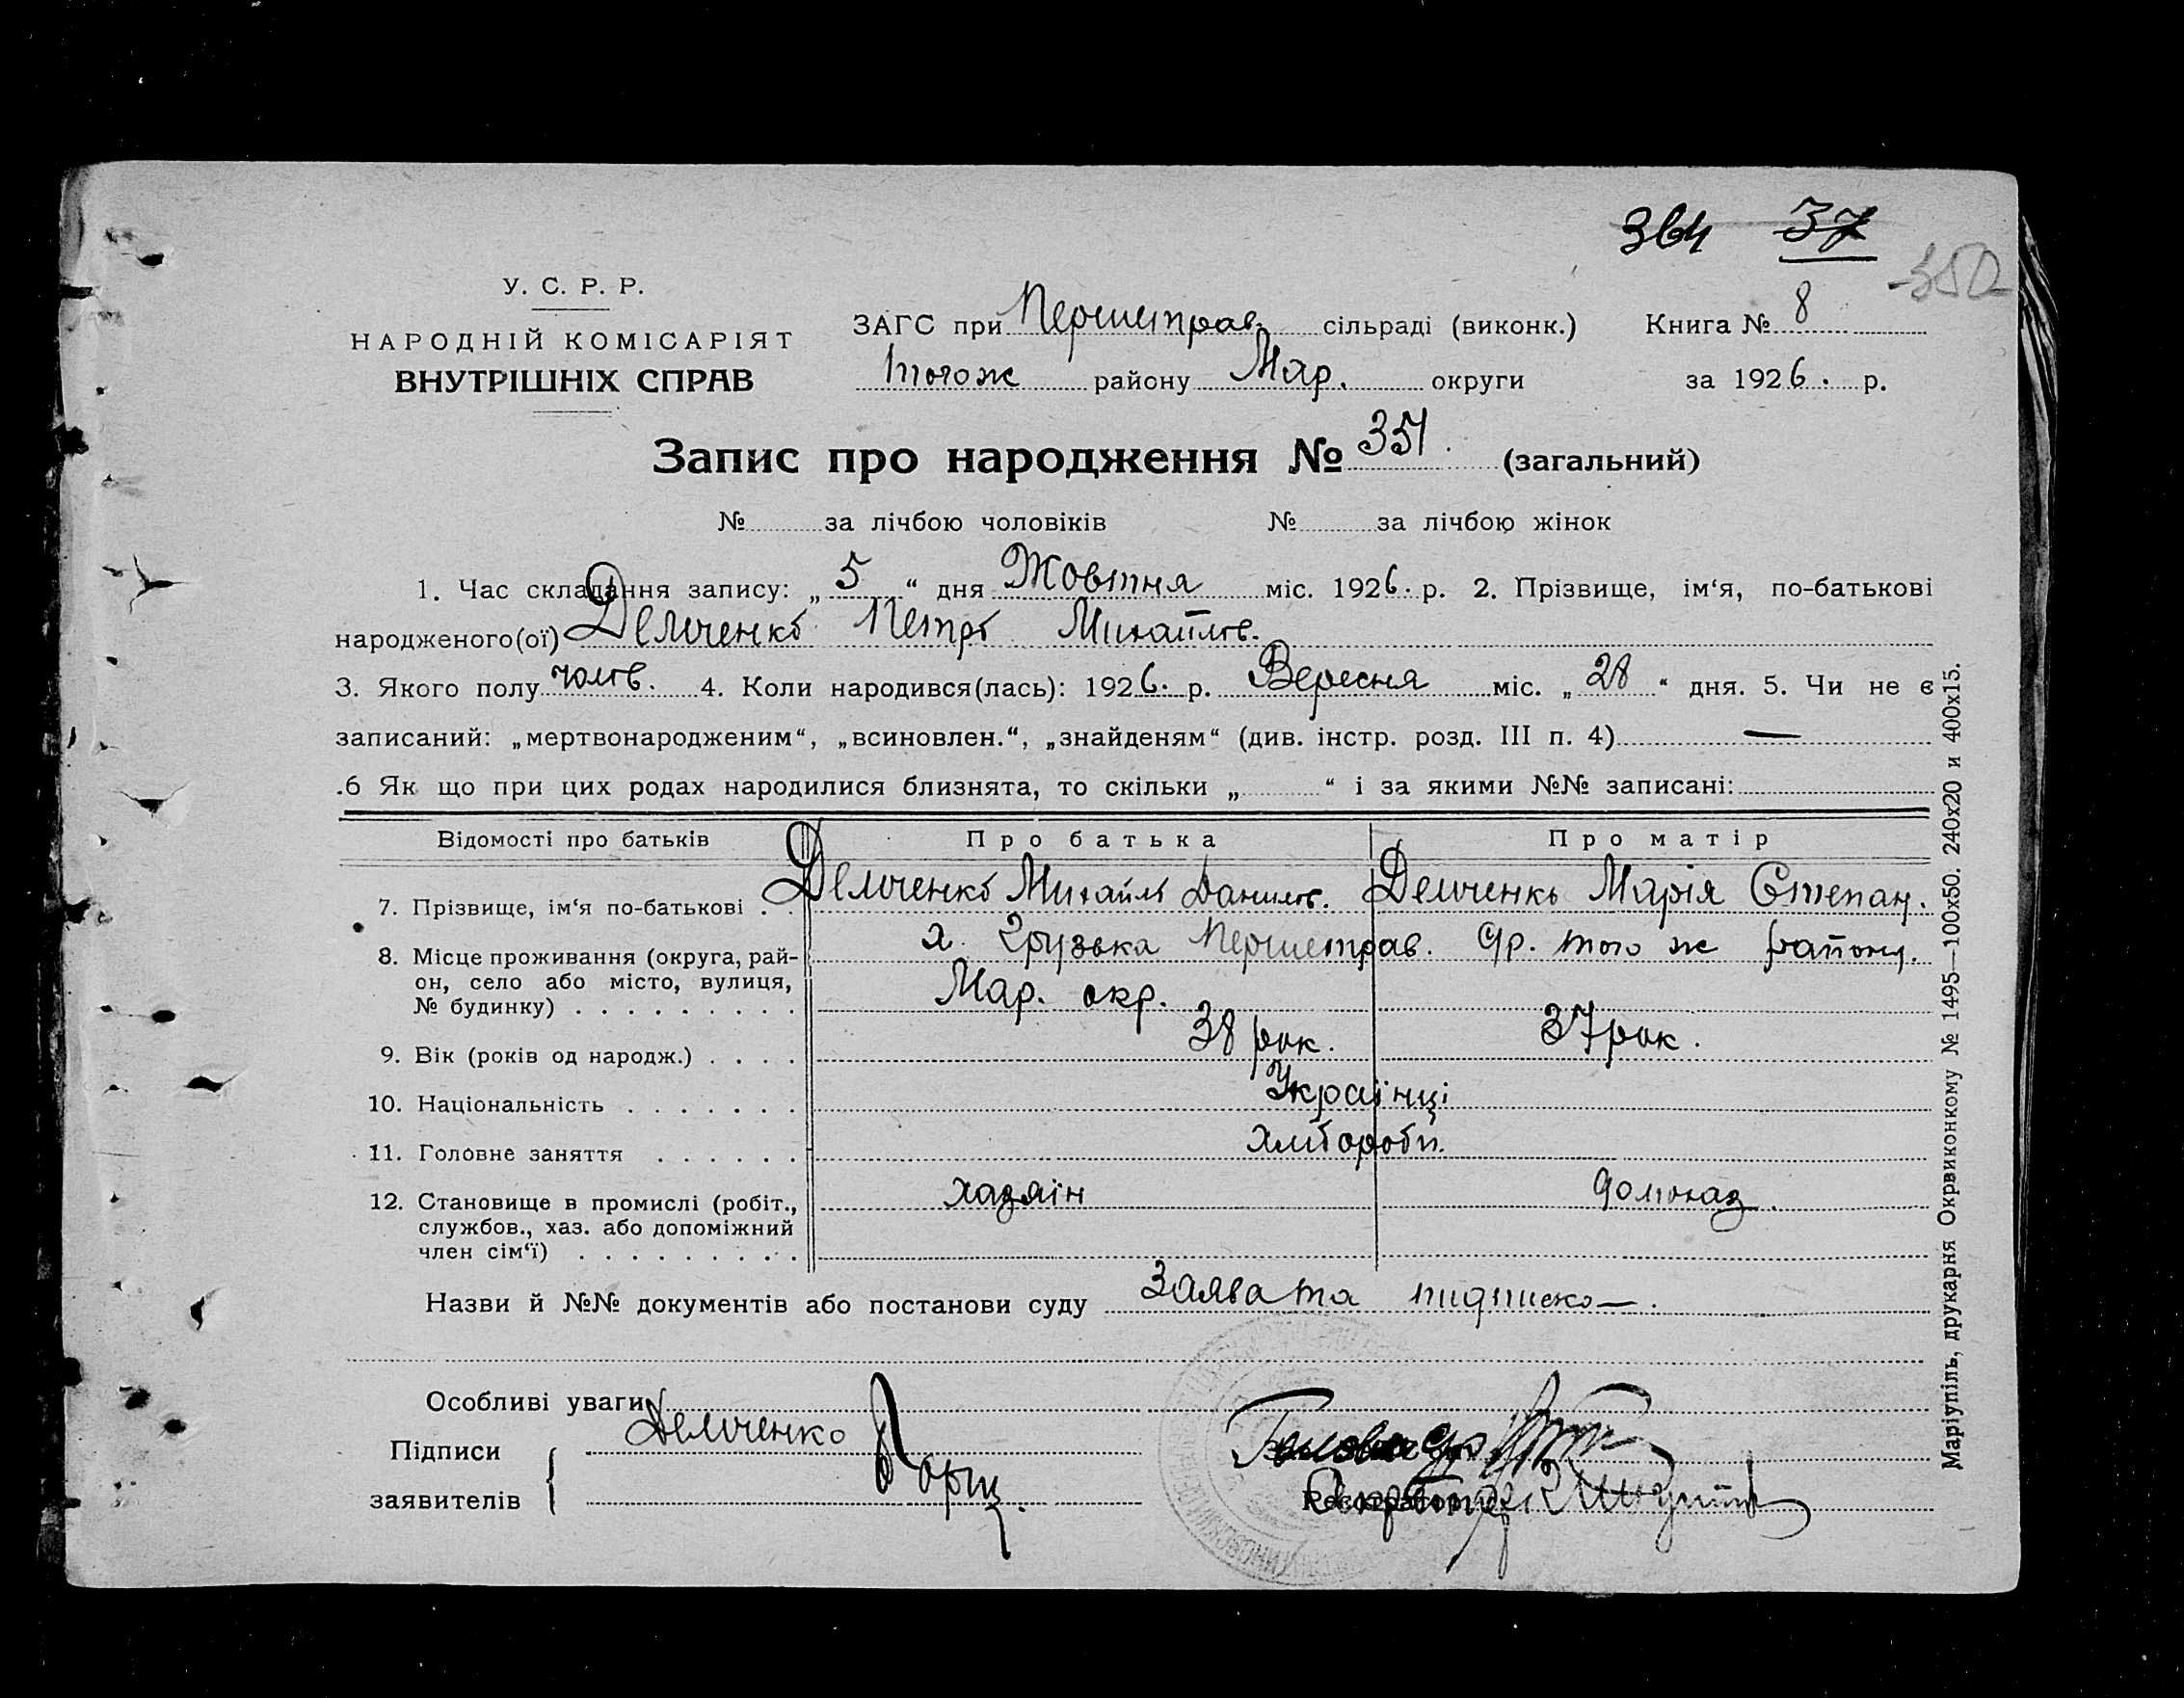 364 37
350
У. С. Р. Р.
НАРОДНІЙ КОМІСАРІЯТ
ВНУТРІШНІХ СПРАВ
ЗАГС при Першетрав. сільраді (виконк.) Книга № 8
тогож району Мар. округи за 1926. р.
Запис про народження № 351. (загальний)
№ за лічбою чоловіків № за лічбою жінок
1. Час складання запису: „5“ дня Жовтня міс. 1926. р. 2. Прізвище, ім‘я, по-батькові
народженого(ої) Демченко Петро Михайлов.
3. Якого полу чолов. 4. Коли народився(лась): 1926. р. Вересня міс. „28“ дня. 5. Чи не є
записаний: „мертвонародженим“, „всиновлен.“, „знайденям“ (див. інстр. розд. III п. 4) —
.6 Як що при цих родах народилися близнята, то скільки „ “ і за якими №№ записані:
Відомості про батьків Про батька Про матір
7. Прізвище, ім‘я по-батькові . . Демченко Михайло Данилов. Демченко Марія Степан.
8. Місце проживання (округа, рай- х. Грузька Першетрав. с/р. того ж району.
он, село або місто, вулиця,
№ будинку) . . . . . . . . . Мар. окр.
9. Вік (років од народж.) . . . . 38 рок. 37 рок.
10. Національність . . . . . . . Українці
11. Головне заняття . . . . . . хлібороби.
12. Становище в промислі (робіт., хазяїн домохаз.
службов., хаз. або допоміжний
член сім‘ї) . . . . . . . . .
Назви й №№ документів або постанови суду Заява та підписка —.
Особливі уваги
Підписи Демченко Голова с/р
заявителів
Маріупіль, друкарня Окрвиконкому № 1495—100х50. 240х20 и 400х15.